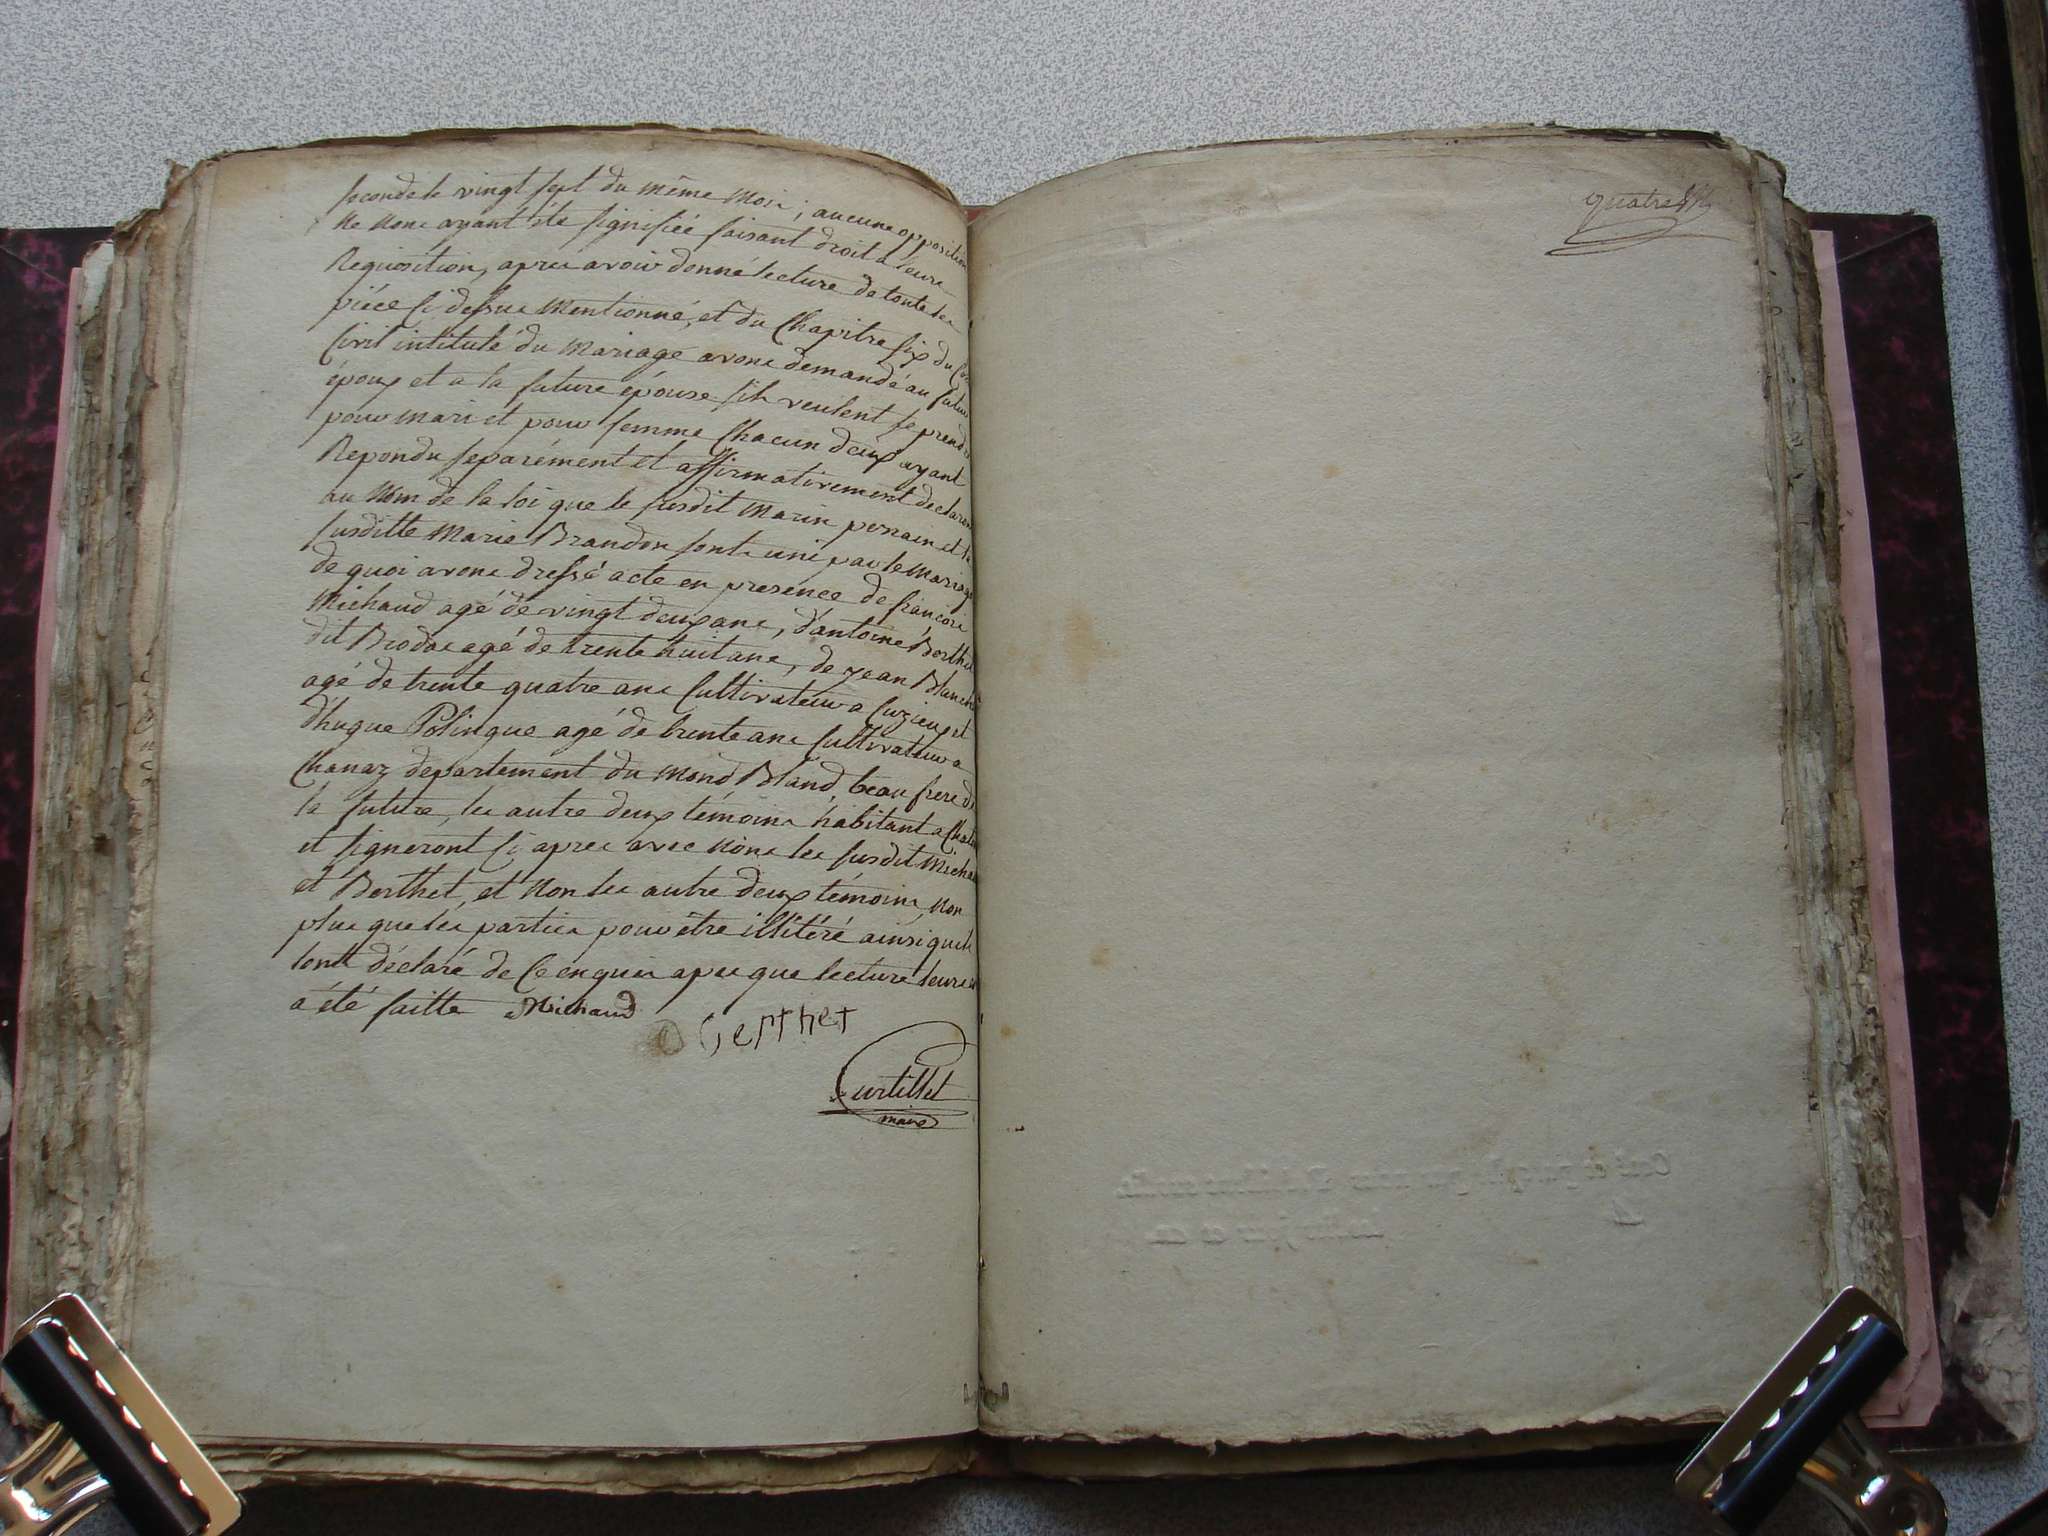 seconde le vingt sept du même mois ; aucune opposition
ne nous ayant été signifiée faisant droit a leurs
Requisition, apres avoir donné lecture de toutes les
piéces si dessus mentionné, et du Chapitre six du
Civil intitulé du mariage avons demandé au futur
époux et a la future épouse s'ils veulent se prendre
pour mari et pour femme Chacun deux ayant
Repondu separément et affirmativement declarons
au Nom de la loi que le susdit Marin perrain et la
susditte Marie Brandon sont uni par le mariage
de quoi avons dressé acte en presence de françois
Michaud agé de vingt deux ans, d'antoine Berthet
dit Brodas agé de trente huit ans, de jean Blanch
agé de trente quatre ans Cultivateur a Cuzieux et
d'hugue Polingue agé de trente ans Cultivateur a
Chanaz departement du Mond Bland, beau frere de
la future, les autre deux témoins habitant a
et signeront si apres avec Nous les susdit Michaud
et Berthet, et Non les autre deux témoins, Non
plus que les parties pour être illitéré ainsi quils
lont déclaré de Ce enquis apres que lecture leurs
a été faitte Michaud
Berthet
Curtillet
maire
quatre